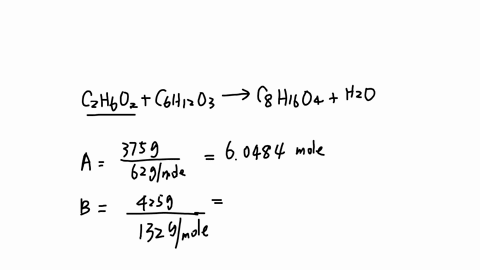 C₂H₆O₂ + C₆H₁₂O₃ → C₈H₁₆O₄ + H₂O
A = 375g / 62g/mole = 6.0484 mole
B = 425g / 132g/mole =